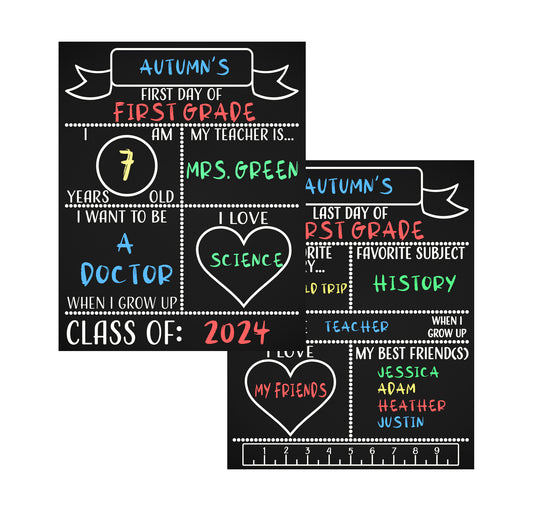 AUTUMN'S
FIRST DAY OF
FIRST GRADE
I AM
7
YEARS OLD
MY TEACHER IS...
MRS. GREEN
I WANT TO BE
A
DOCTOR
WHEN I GROW UP
I LOVE
SCIENCE
CLASS OF: 2024
AUTUMN'S
LAST DAY OF
RST GRADE
ORITE
RY...
LD TRIP
FAVORITE SUBJECT
HISTORY
TEACHER
WHEN I
GROW UP
I LOVE
MY FRIENDS
MY BEST FRIEND(S)
JESSICA
ADAM
HEATHER
JUSTIN
1 2 3 4 5 6 7 8 9